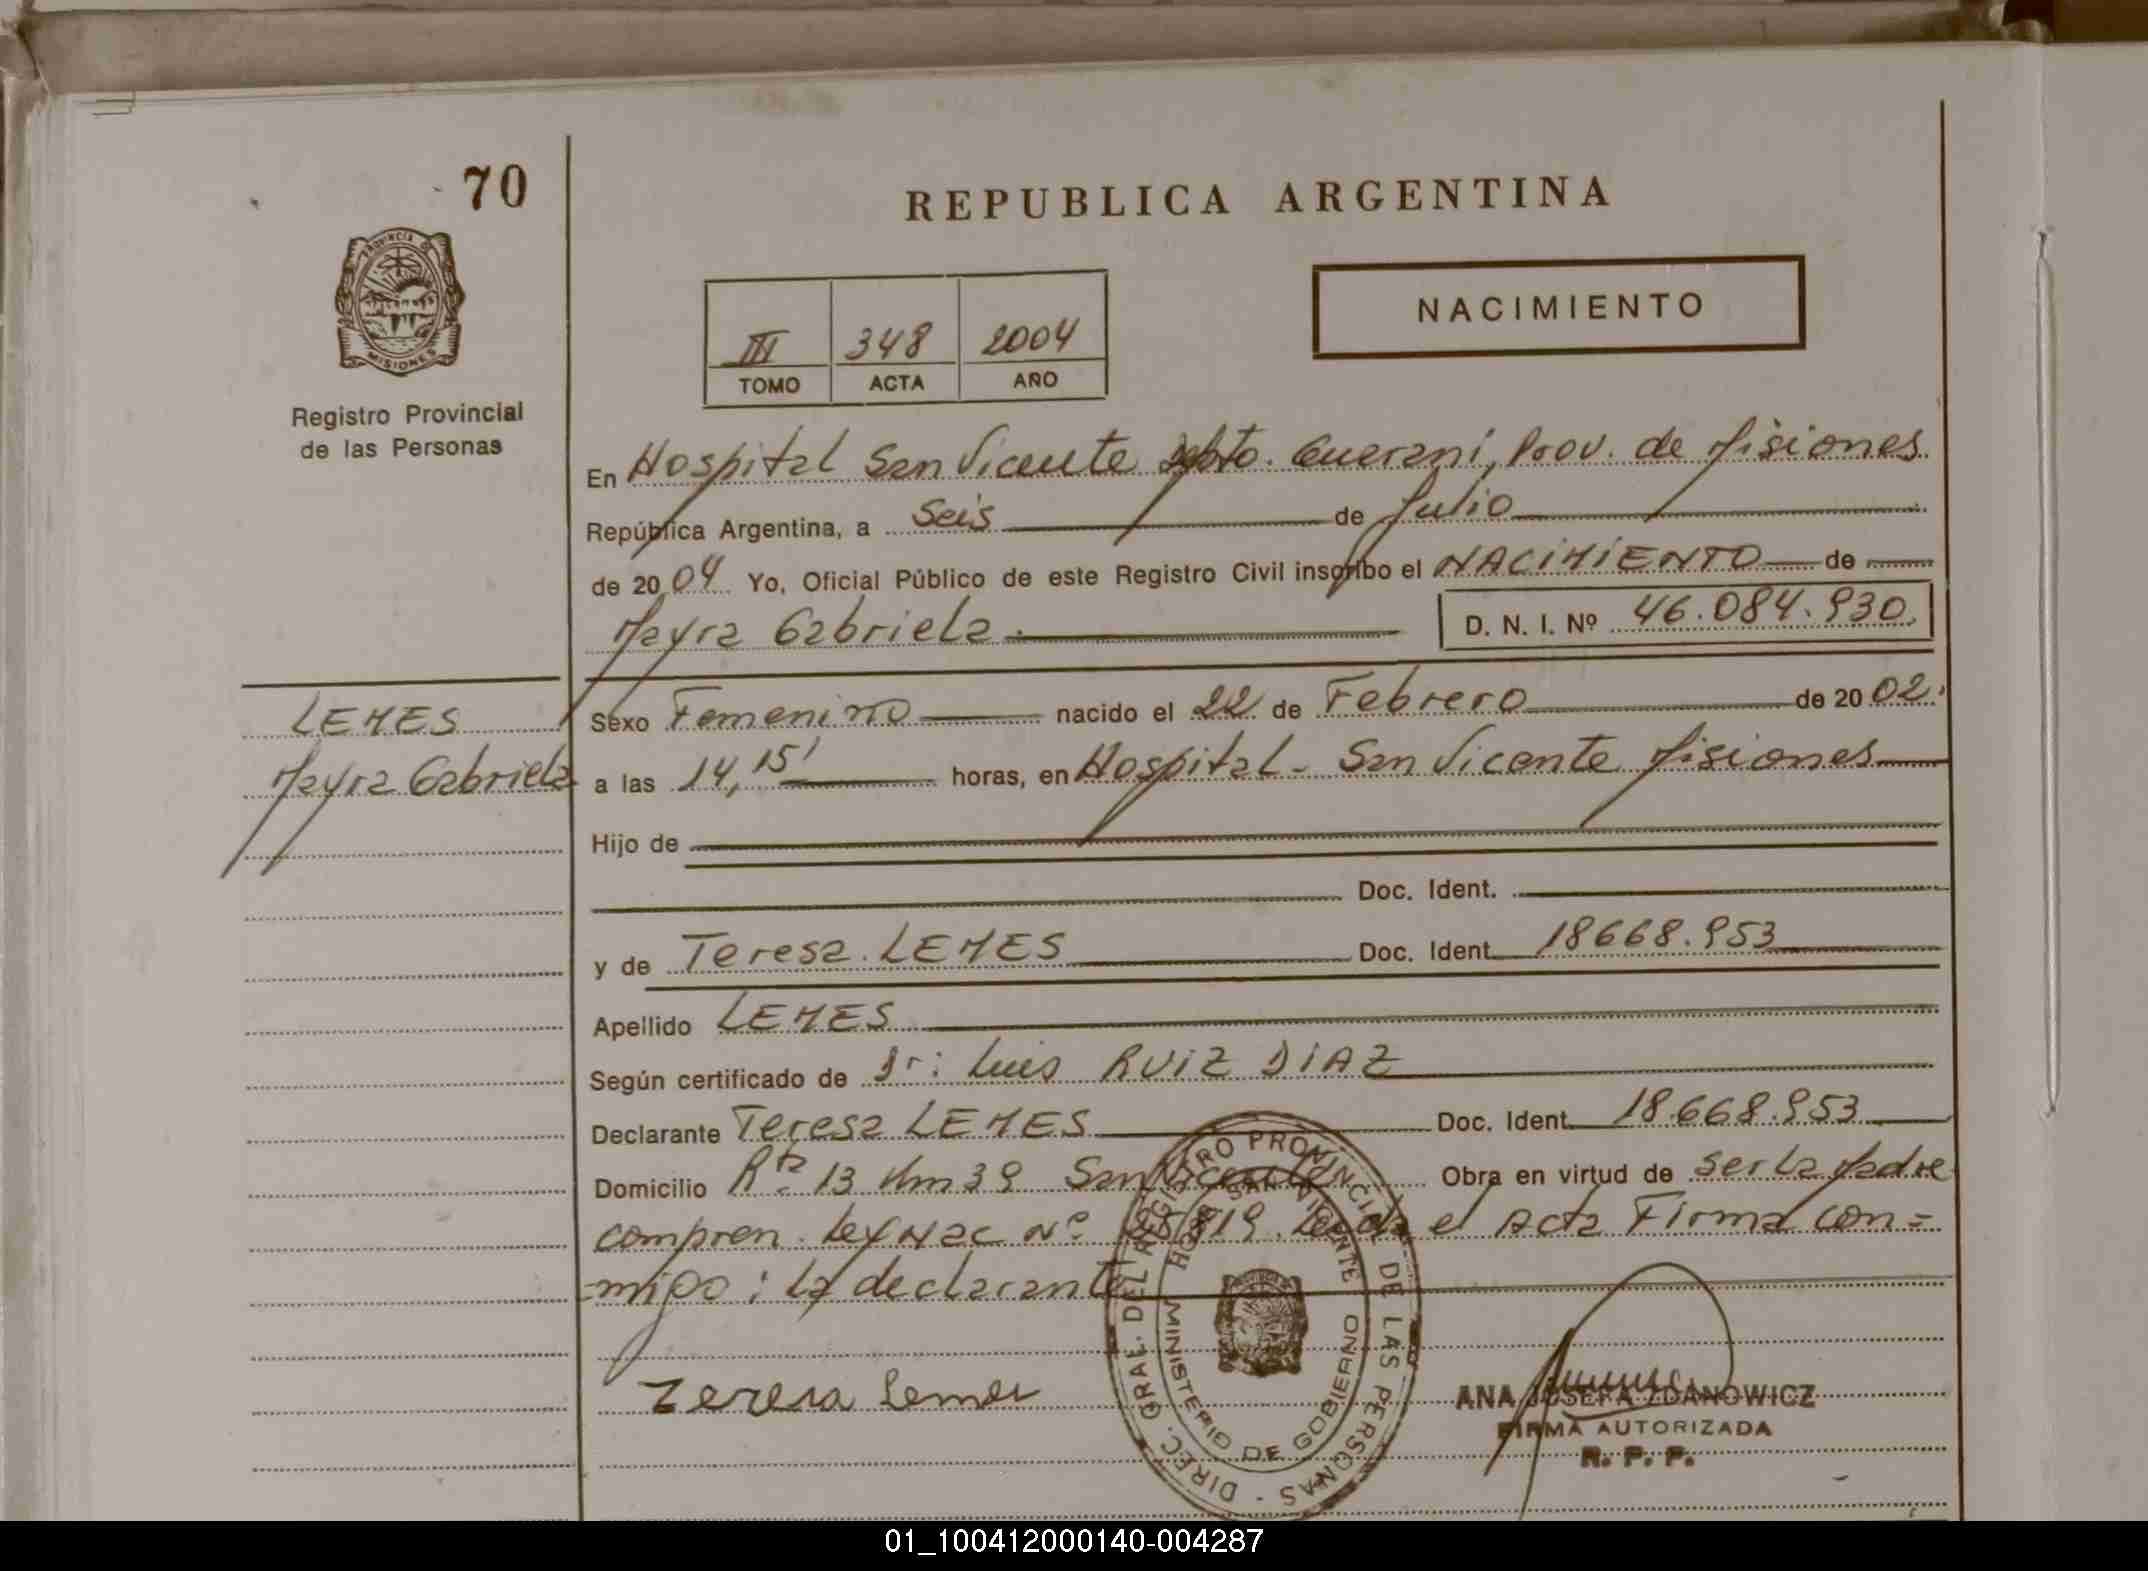 70
REPUBLICA ARGENTINA
PROVINCIA DE
MISIONES
Registro Provincial
de las Personas
III 348 2004
TOMO ACTA AÑO
NACIMIENTO
En Hospital San Vicente Dpto. Guarani, Prov. de Misiones
República Argentina, a Seis de Julio
de 2004 Yo, Oficial Público de este Registro Civil inscribo el NACIMIENTO de
Mayra Gabriela D. N. I. Nº 46.084.930.
LEMES
Mayra Gabriela
Sexo Femenino nacido el 22 de Febrero de 2002.
a las 14,15' horas, en Hospital - San Vicente Misiones
Hijo de
Doc. Ident.
y de Teresa LEMES Doc. Ident. 18668.953
Apellido LEMES
Según certificado de Dr: Luis RUIZ DIAZ
Declarante Teresa LEMES Doc. Ident. 18.668.953
Domicilio Rta 13 Km 39 San Vicente Obra en virtud de ser la Madre
compren. Ley Nac Nº 819. Leida el Acta Firma con=
migo: la declarante
Teresa Lemes
DIREC. GRAL. DEL REGISTRO PROVINCIAL DE LAS PERSONAS -
HOSP. SAN VICENTE
MINISTERIO DE GOBIERNO
ANA JOSEFA ZDANOWICZ
FIRMA AUTORIZADA
R. P. P.
01_100412000140-004287